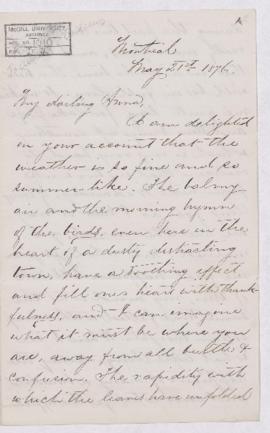 McGILL UNIVERSITY
ARCHIVES
ACC. NO.
REF.
Montreal
May 21st 1876.
My darling Anna,
I am delighted
on your account that the
weather is so fine and so
summer-like. The balmy
air and the morning hymn
of the birds, even here in the
heart of a dusty distracting
town, have a soothing effect
and fill one's heart with thank-
fulness, and I can imagine
what it must be where you
are, away from all bustle &
confusion. The rapidity with
which the leaves have unfolded